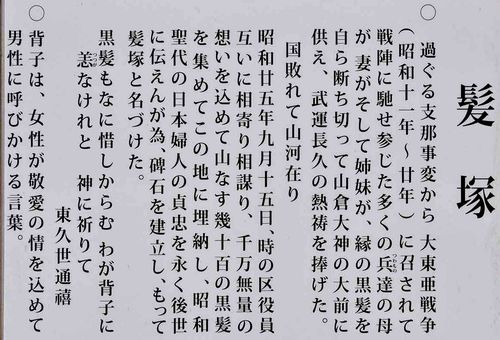 髪塚
○ 過ぐる支那事変から 大東亜戦争
(昭和十一年〜廿年)に召されて
戦陣に馳せ参じた多くの兵達の母
つわもの
が 妻がそして姉妹が、縁の黒髪を
自ら断ち切って山倉大神の大前に
供え、武運長久の熱祷を捧げた。
国敗れて山河在り
昭和廿五年九月十五日、時の区役員
互いに相寄り相謀り、千万無量の
想いを込めて山なす幾十百の黒髪
を集めてこの地に埋納し、昭和
聖代の日本婦人の貞忠を永く後世
に伝えんが為、碑石を建立し、もって
髪塚と名づけた。
黒髪もなに惜しからむ わが背子に
恙なけれと 神に祈りて
つつが
東久世通禧
○ 背子は、女性が敬愛の情を込めて
男性に呼びかける言葉。